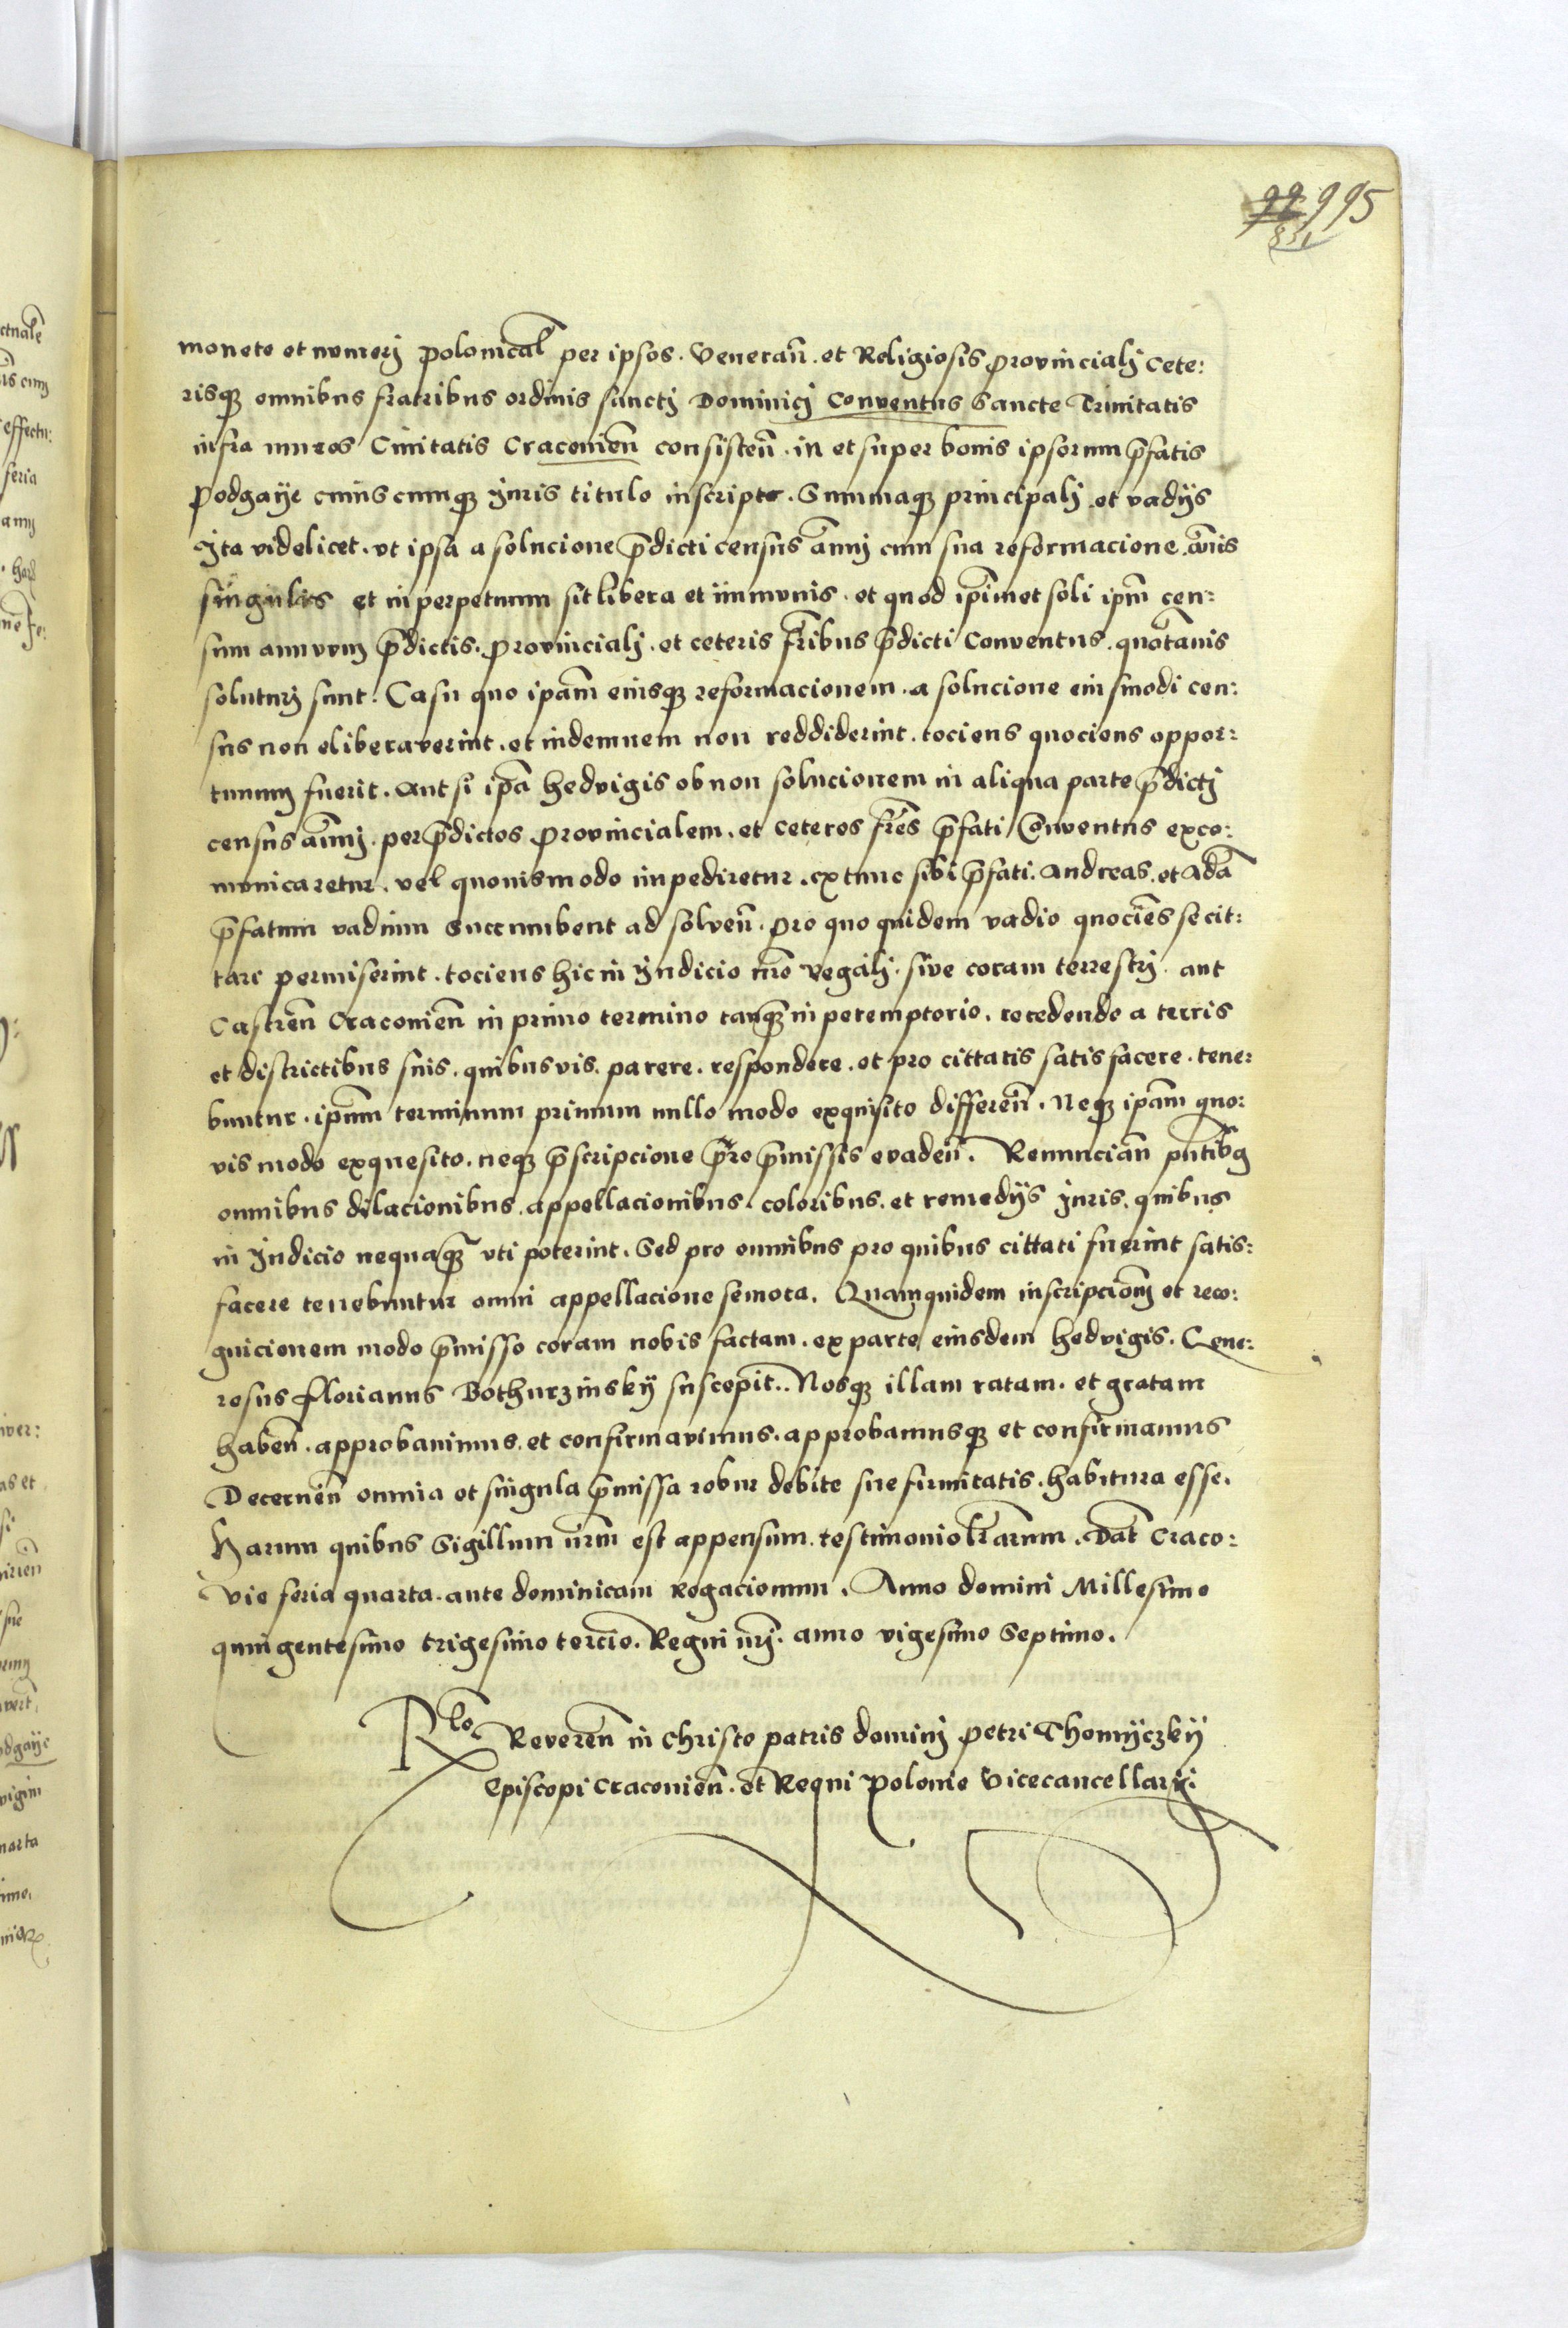 995
monete et numerj polonicał per ipsos. Venerañ. et Religiosis provincialj Cete:
risqȝ omnibus fratribus ordinis sanctj Dominicj Conventus Sancte Trinitatis
infra muros Civitatis Cracovieñ consisteñ. in et super bonis ipsorum p̄fatis
Podgaÿe cuiuscumqȝ Juris titulo inscripto. Summaqȝ principalj et vadijs
ita videlicet. vt ipsa a solucione p̄dicti census añuj cum sua reformacione. añis
singulis et in perpetuum sit libera et immunis. et quod ip̄imet soli ip̄m cen:
sum annuum p̄dictis. provincialj. et ceteris fr̄ibus p̄dicti Conventus. quotañis
soluturj sunt. Casu quo ip̄am eiusqȝ reformacionem. a solucione eiusmodi cen:
sus non eliberaverint. et indemnem non reddiderint. tociens quociens oppor:
tunum fuerit. Aut si ip̄a hedvigis ob non solucionem in aliqua parte p̄dictj
census añuj. per p̄dictos provincialem. et ceteros fr̄es p̄fati Conventus exco:
municaretur. vel quovismodo impediretur. extunc sibi p̄fati. Andreas. et Adā
p̄fatum vadium succumbent ad solveñ. pro quo quidem vadio quociēs se cit:
tare permiserint. tociens hic in Judicio nr̄o regalj. sive coram terrestrj. aut
Castreñ Cracovieñ in primo termino tanqȝ in peremptorio. recedendo a terris
et districtibus suis. quibusvis. parere. respondere. et pro cittatis satisfacere. tene:
buntur. ip̄um terminum primum nullo modo exquisito differeñ. Neqȝ ip̄am quo:
vis modo exquesito. neqȝ p̄scripcione p̄ro p̄missis evadeñ. Renunciañ pn̄tibȝ
omnibus dilacionibus. appellacionibus. coloribus. et remedijs Juris. quibus
in Judicio nequaqȝ vti poterint. Sed pro omnibus pro quibus cittati fuerint satis:
facere tenebuntur omni appellacione semota. Quamquidem inscripcionem et reco:
gnicionem modo p̄misso coram nobis factam. ex parte eiusdem hedvigis. Gene:
rosus Florianus Bothurzinskÿ suscepit. Nosqȝ illam ratam. et gratam
habeñ. approbavimus. et confirmavimus. approbamusqȝ et confirmamus
Decerneñ omnia et singula p̄missa robur debite sue firmitatis. habitura esse.
Harum quibus Sigillum nr̄m est appensum. testimonio lr̄arum. Dat̄ Craco:
vie feria quarta. ante dominicam rogacionum. Anno domini Millesimo
quingentesimo trigesimo tercio. Regni nr̄j. anno vigesimo Septimo.
Rło Revereñ in Christo patris dominj Petri Thomÿczkÿ
Episcopi Cracovieñ. et Regni Polonie Vicecancellarij.